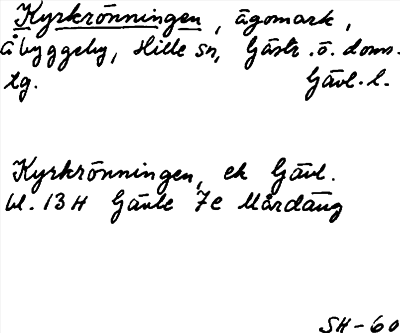 Kyrkrönningen, ägomark,
Åbyggeby, Hille sn, Gästr. ö. doms.
tg. Gävl. l.
Kyrkrönningen, ek Gävl.
bl. 13 H Gävle 7e Mårdäng
SH-60